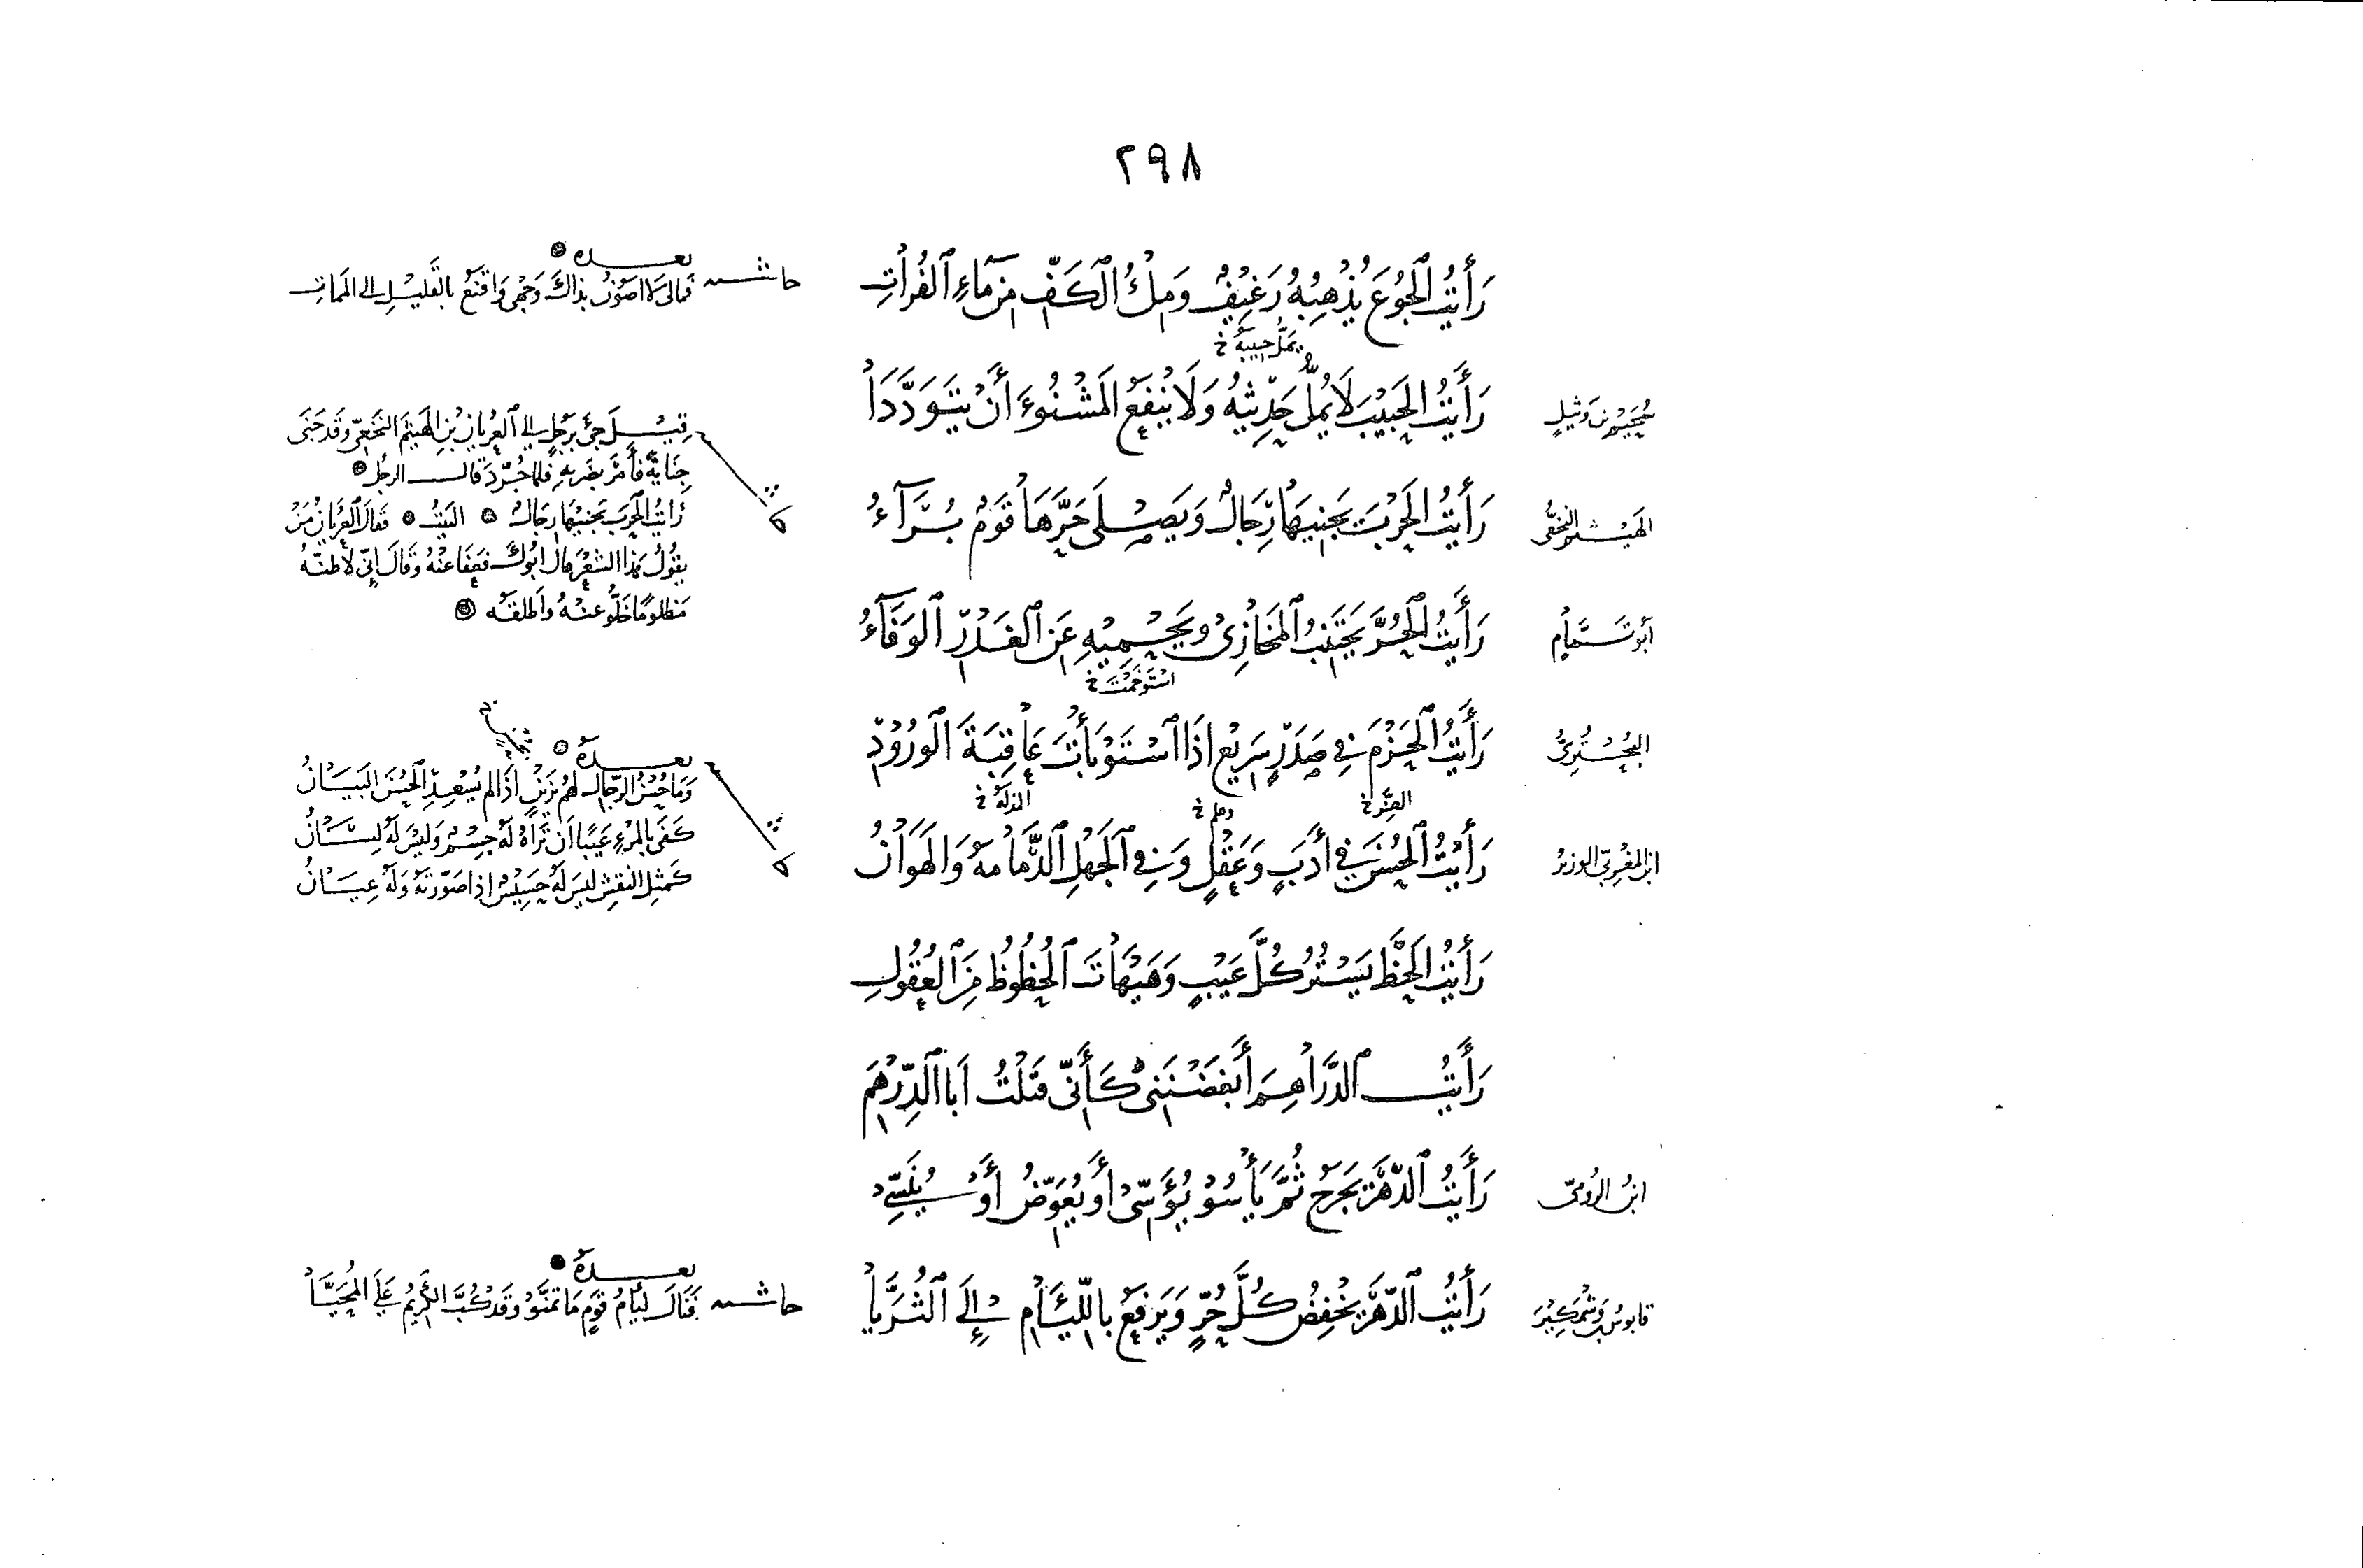 ٢٩٨
رَأَيْتُ الْجُوعَ يُذْهِبُهُ رَغِيفٌ وَمِلْءُ الْكَفِّ مِنْ مَاءِ الْفُرَاتِ
حاشيه
بعده
فمالي لا اصون بذاك وجهي واقنع بالقليل الى الممات
يمل حبيبه خ
سحيم بن وثيل
رَأَيْتُ الْحَبِيبَ لَا يُمَلُّ حَدِيثُهُ وَلَا يَنْفَعُ الْمَشْنُوءَ أَنْ يَتَوَدَّدَا
الهيثم النخعى
رَأَيْتُ الْحَرْبَ يَجْنِيهَا رِجَالٌ وَيَصْلَى حَرَّهَا قَوْمٌ بُرَآءُ
قيل جئ برجل الى العريان بن الهيثم النخعى وقد جنى
جناية فأمر بضربه فلما جرد قال الرجل
رأيت الحرب يجنيها رجال البيت فقال العريان من
يقول هذا الشعر قال ابوك فعفا عنه وقال إني لأظنه
مظلوما خلوا عنه واطلقه
ابو تمام
رَأَيْتُ الْحُرَّ يَجْتَنِبُ الْمَخَازِي وَيَحْمِيهِ عَنِ الْغَدْرِ الْوَفَاءُ
استوخمت خ
البحترى
رَأَيْتُ الْحَزْمَ فِي صَدَرٍ سَرِيعٍ اذَا اسْتَوْبَأْتَ عَاقِبَةَ الْوُرُودِ
العز خ
وعلم خ
المذلة خ
ابن المغربى الوزير
رَأَيْتُ الْحُسْنَ فِي أَدَبٍ وَعَقْلٍ وَفِي الْجَهْلِ الدَّمَامَهُ وَالْهَوَانُ
بعده
وما حسن الرجال لهم بزين اذا لم يسعد الحسن البيان
كفى بالمرء عيبا ان تراه له جسم وليس له لسان
كمثل النقش ليس له حسيس اذا صورته وله عيان
رَأَيْتُ الْحَظَّ يَسْتُرُ كُلَّ عَيْبٍ وَهَيْهَاتَ الْحُظُوظُ مِنَ الْعُقُولِ
رَأَيْتُ الدَّرَاهِمَ أَبْغَضْنَنِي كَأَنِّي قَتَلْتُ أَبَا الدِّرْهَمِ
ابن الرومى
رَأَيْتُ الدَّهْرَ يَجْرَحُ ثُمَّ يَأْسُو يُؤَسِّي أَوْ يُعَوِّضُ أَوْ يُنَسِّي
قابوس بن وشمكير
رَأَيْتُ الدَّهْرَ يَخْفِضُ كُلَّ حُرٍّ وَيَرْفَعُ بِاللِّئَامِ إِلَى الثُّرَيَّا
حاشيه
بعده
فنال لئام قوم ما تمنو وقد كب الكريم على المحيا